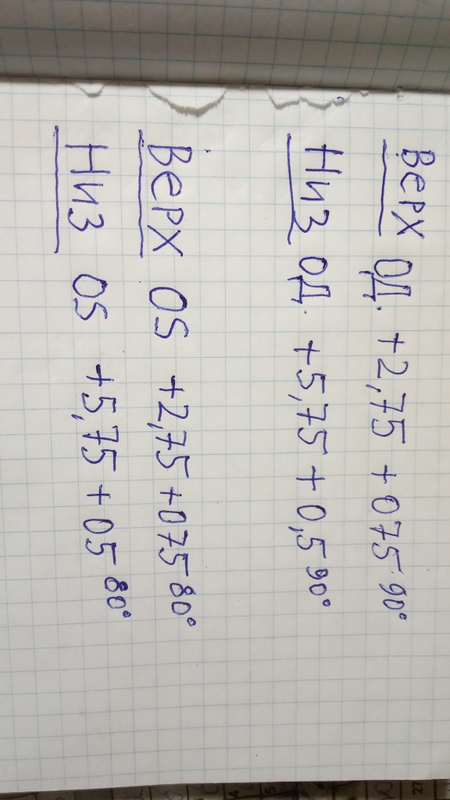 Верх ОД. +2,75 +075 90°
Низ ОД. +5,75 +0,5 90°
Верх OS +2,75 +075 80°
Низ OS +5,75 +05 80°